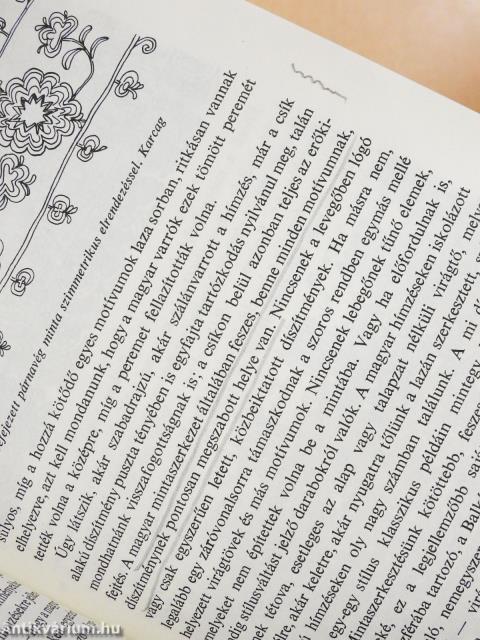 efejezett párnavég minta szimmetrikus elrendezéssel. Karcag
súlyos, míg a hozzá kötődő egyes motívumok laza sorban, ritkásan vannak
elhelyezve, azt kell mondanunk, hogy a magyar varrók ezek tömött peremét
tették volna a középre, míg a peremet fellazították volna.
Úgy látszik, akár szabadrajzú, akár szálánvarrott a hímzés, már a csík
alakú díszítmény puszta tényében is egyfajta tartózkodás nyilvánul meg, talán
mondhatnánk visszafogottságnak is, a csíkon belül azonban teljes az erőki-
fejtés. A magyar mintaszerkezet általában feszes, benne minden motívumnak,
díszítménynek pontosan megszabott helye van. Nincsenek a levegőben lógó
vagy csak egyszerűen letett, közbeiktatott díszítmények. Ha másra nem,
legalább egy zátróvonalsorra támaszkodnak a szoros rendben egymás mellé
helyezett virágtövek és más motívumok. Nincsenek lebegőnek tűnő elemek,
helyeket nem építettek volna be a mintába. Vagy ha előfordulnak is,
dig stílusváltást jelző darabokról valók. A magyar hímzéseken iskolázott
ek tétova, esetleges az alap vagy talapzat nélküli virágtő, melye
e, akár keletre, akár nyugatra tőlünk a lazán szerkesztett, s
ú hímzéseken oly nagy számban találunk. A mi d
egy-egy stílus klasszikus példáin mintegy
intaszerkesztésünk kötöttebb, fesze
té, ez a legjellemzőbb saját
érába tartozó, a Balk
nemegyszer
antikvárium.hu